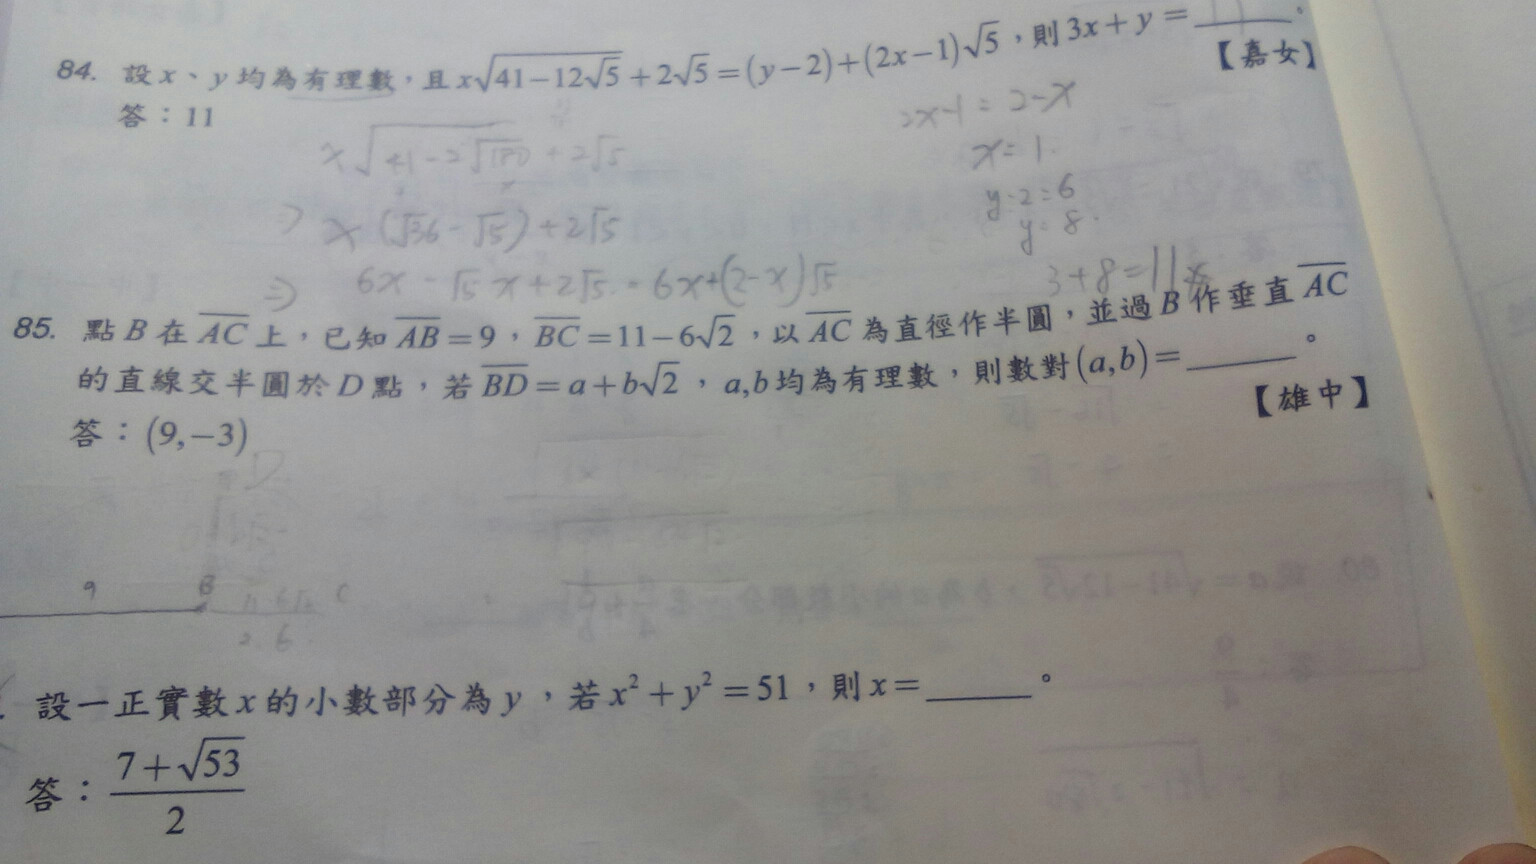 84. 設 x、y 均為有理數，且 x√(41−12√5) + 2√5 = (y−2)+(2x−1)√5，則 3x+y = ______。
【嘉女】
答：11
2x-1 = 2-x
x√(41-2√180) + 2√5
x = 1.
y-2=6
⇒ x(√36-√5)+2√5
y=8.
⇒ 6x - √5 x + 2√5 = 6x+(2-x)√5
3+8=11
85. 點 B 在 AC 上，已知 AB = 9，BC = 11−6√2，以 AC 為直徑作半圓，並過 B 作垂直 AC
的直線交半圓於 D 點，若 BD = a+b√2，a,b 均為有理數，則數對 (a,b) = ______。
【雄中】
答：(9,−3)
D
9 B C
設一正實數 x 的小數部分為 y，若 x²+y²=51，則 x = ______。
答：(7+√53)/2